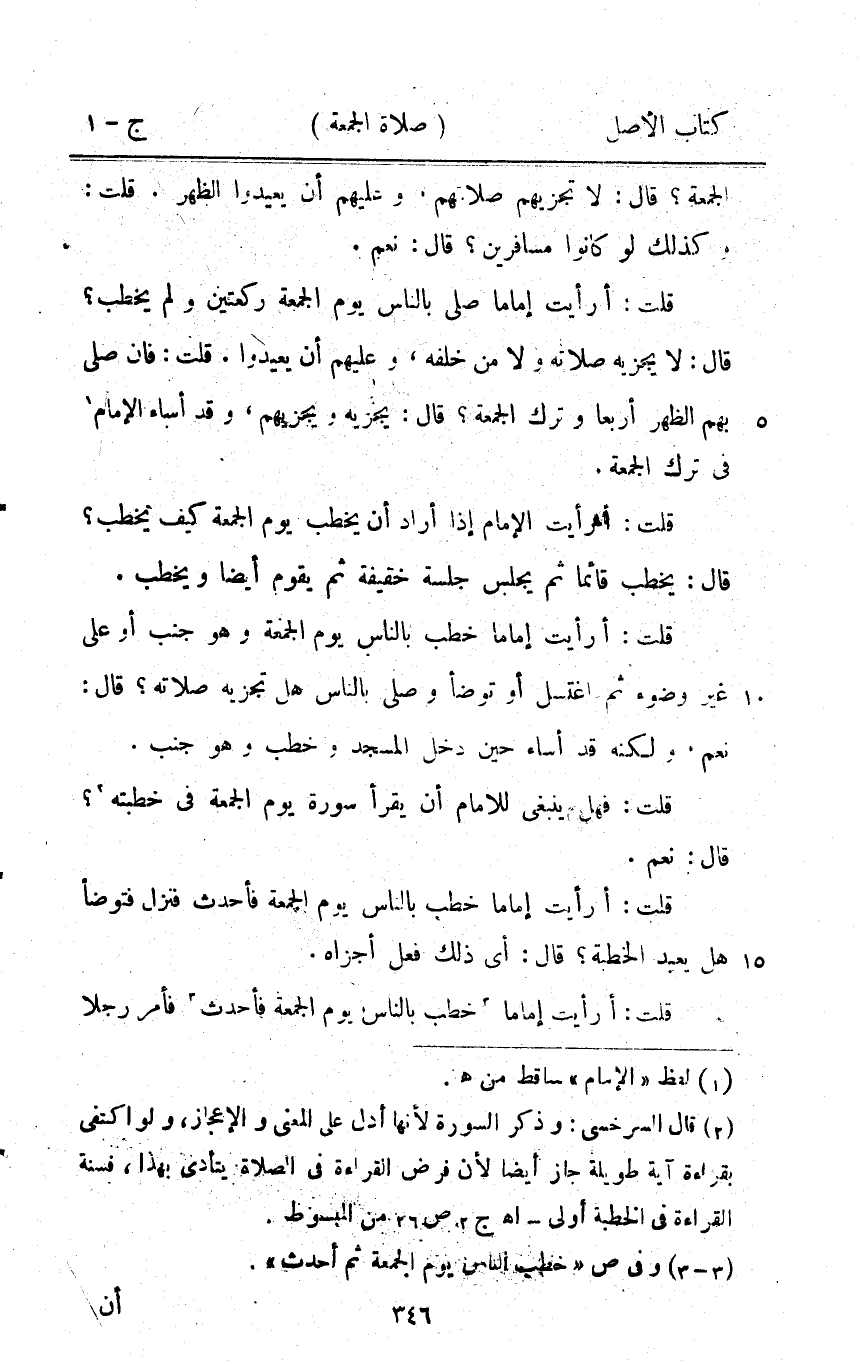 كتاب الأصل ( صلاة الجمعة ) ج – ١
الجمعة ؟ قال : لا تجزيهم صلاتهم ، و عليهم أن يعيدوا الظهر . قلت :
و كذلك لو كانوا مسافرين ؟ قال : نعم .
قلت : أ رأيت إماما صلى بالناس يوم الجمعة ركعتين و لم يخطب ؟
قال : لا يجزيه صلاته و لا من خلفه ، و عليهم أن يعيدوا . قلت : فان صلى
٥ بهم الظهر أربعا و ترك الجمعة ؟ قال : يجزيه و يجزيهم ، و قد أساء الإمام ١
فى ترك الجمعة .
قلت : أ رأيت الإمام إذا أراد أن يخطب يوم الجمعة كيف يخطب ؟
قال : يخطب قائما ثم يجلس جلسة خفيفة ثم يقوم أيضا و يخطب .
قلت : أ رأيت إماما خطب بالناس يوم الجمعة و هو جنب أو على
١٠ غير وضوء ثم اغتسل أو توضأ و صلى بالناس هل تجزيه صلاته ؟ قال :
نعم ، و لكنه قد أساء حين دخل المسجد و خطب و هو جنب .
قلت : فهل ينبغى للامام أن يقرأ سورة يوم الجمعة فى خطبته ٢ ؟
قال : نعم .
قلت : أ رأيت إماما خطب بالناس يوم الجمعة فأحدث فنزل فتوضأ
١٥ هل يعيد الخطبة ؟ قال : أى ذلك فعل أجزاه .
قلت : أ رأيت إماما ٣ خطب بالناس يوم الجمعة فأحدث ٣ فأمر رجلا
(١) لفظ « الإمام » ساقط من ه .
(٢) قال السرخسى : و ذكر السورة لأنها أدل على المعنى و الإعجاز ، و لو اكتفى
بقراءة آية طويلة جاز أيضا لأن فرض القراءة فى الصلاة يتأدى بهذا ، فسنة
القراءة فى الخطبة أولى – اه ج ٢ ص ٢٦ من المبسوط .
(٣–٣) و فى ص « خطب الناس يوم الجمعة ثم أحدث » .
أن
٣٤٦